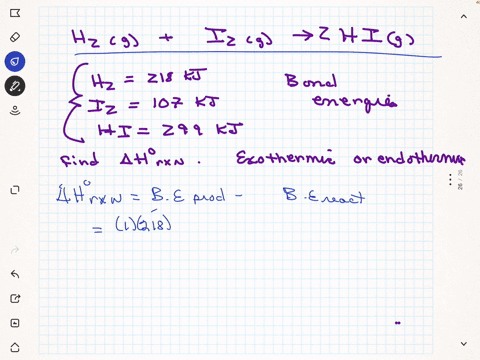 H2 (g) + I2 (g) → 2 HI (g)
H2 = 218 KJ
I2 = 107 KJ
HI = 299 KJ
Bond
energies
find ΔH°rxn. Exothermic or endothermic
ΔH°rxn = B.E prod - B.E react
= (1)(218)
26 / 26